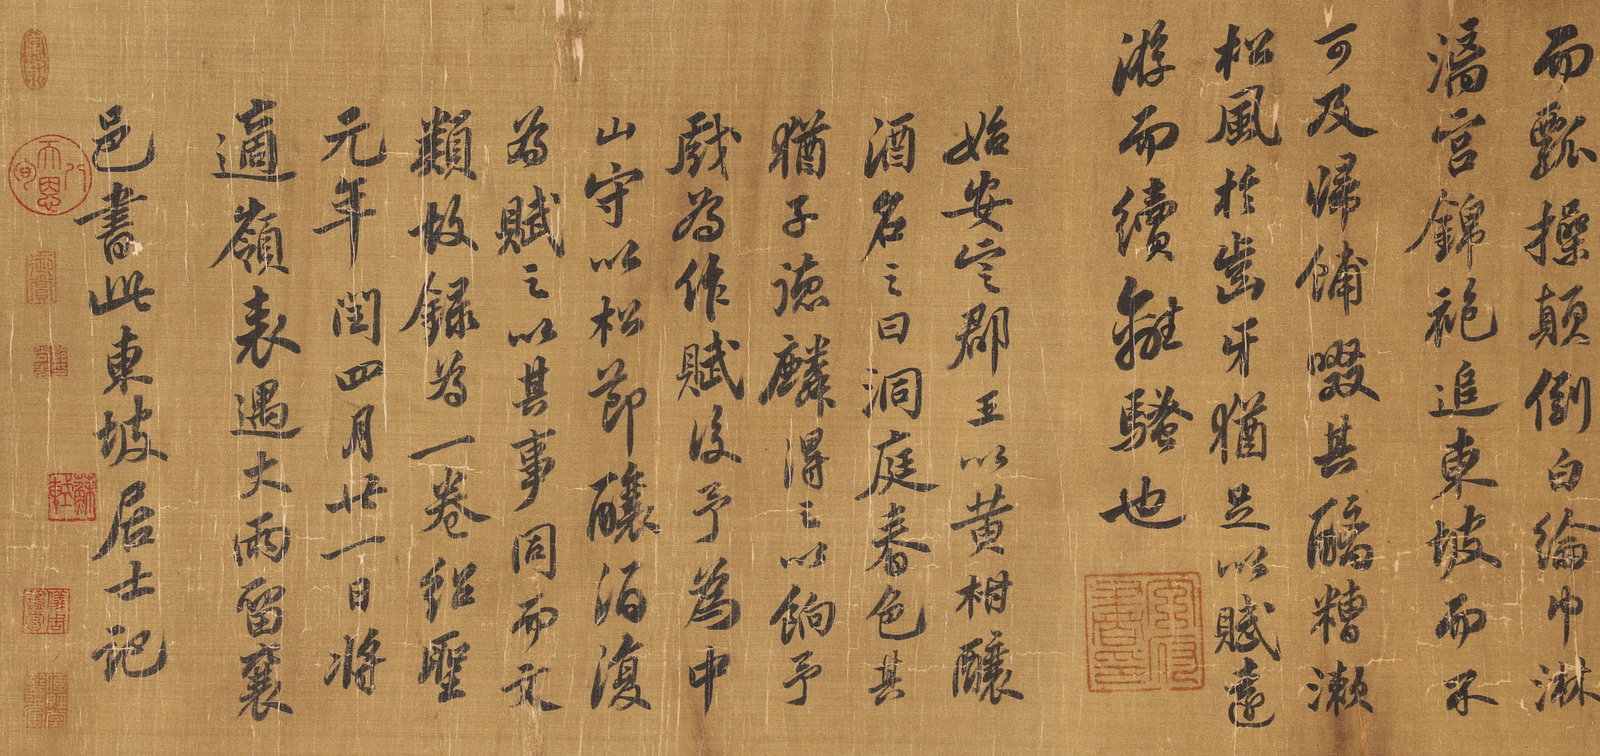 而瓢操顛倒白綸巾淋
漓宮錦袍追東坡而不
可及歸餔歠其醨糟漱
松風於齒牙猶足以賦遠
游而續離騷也
始安定郡王以黄柑釀
酒名之曰洞庭春色其
猶子德麟得之以餉予
戲為作賦後予為中
山守以松節釀酒復
為賦之以其事同而文
類故錄為一卷紹聖
元年閏四月廿一日將
適嶺表遇大雨留襄
邑書此東坡居士記